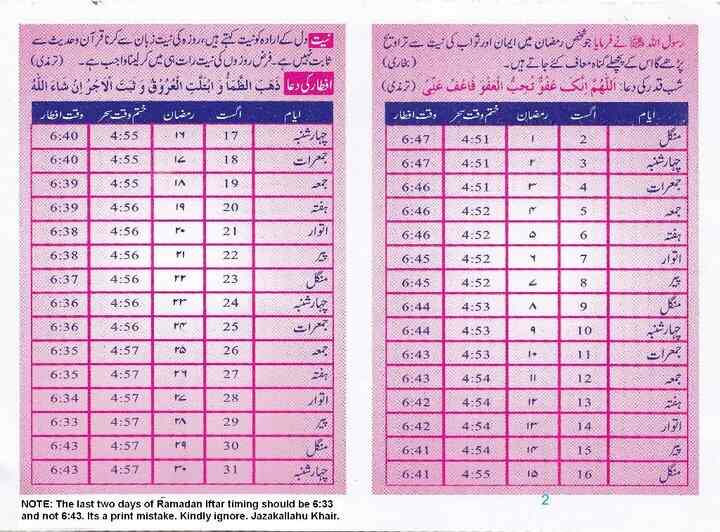 رسول اللہ ﷺ نے فرمایا جو شخص رمضان میں ایمان اور ثواب کی نیت سے تراویح
پڑھے گا اس کے پچھلے گناہ معاف کئے جاتے ہیں۔ (بخاری)
شب قدر کی دعا: اَللّٰهُمَّ اِنَّکَ عَفُوٌّ تُحِبُّ الْعَفْوَ فَاعْفُ عَنِّیْ (ترمذی)
ایام اگست رمضان ختم وقت سحر وقت افطار
منگل 2 ۱ 4:51 6:47
چہارشنبہ 3 ۲ 4:51 6:47
جمعرات 4 ۳ 4:51 6:46
جمعہ 5 ۴ 4:52 6:46
ہفتہ 6 ۵ 4:52 6:46
اتوار 7 ۶ 4:52 6:45
پیر 8 ۷ 4:52 6:45
منگل 9 ۸ 4:53 6:44
چہارشنبہ 10 ۹ 4:53 6:44
جمعرات 11 ۱۰ 4:53 6:43
جمعہ 12 ۱۱ 4:54 6:43
ہفتہ 13 ۱۲ 4:54 6:42
اتوار 14 ۱۳ 4:54 6:42
پیر 15 ۱۴ 4:54 6:41
منگل 16 ۱۵ 4:55 6:41
2
نیت دل کے ارادہ کو نیت کہتے ہیں، روزہ کی نیت زبان سے کرنا قرآن وحدیث سے
ثابت نہیں ہے۔ فرض روزوں کی نیت رات ہی میں کر لینا واجب ہے۔ (ترمذی)
افطار کی دعا ذَهَبَ الظَّمَأُ وَ ابْتَلَّتِ الْعُرُوْقُ وَ ثَبَتَ الْاَجْرُ اِنْ شَاءَ اللّٰهُ
ایام اگست رمضان ختم وقت سحر وقت افطار
چہارشنبہ 17 ۱۶ 4:55 6:40
جمعرات 18 ۱۷ 4:55 6:40
جمعہ 19 ۱۸ 4:55 6:39
ہفتہ 20 ۱۹ 4:56 6:39
اتوار 21 ۲۰ 4:56 6:38
پیر 22 ۲۱ 4:56 6:38
منگل 23 ۲۲ 4:56 6:37
چہارشنبہ 24 ۲۳ 4:56 6:36
جمعرات 25 ۲۴ 4:56 6:36
جمعہ 26 ۲۵ 4:57 6:35
ہفتہ 27 ۲۶ 4:57 6:35
اتوار 28 ۲۷ 4:57 6:34
پیر 29 ۲۸ 4:57 6:33
منگل 30 ۲۹ 4:57 6:43
چہارشنبہ 31 ۳۰ 4:57 6:43
NOTE: The last two days of Ramadan Iftar timing should be 6:33
and not 6:43. Its a print mistake. Kindly ignore. Jazakallahu Khair.